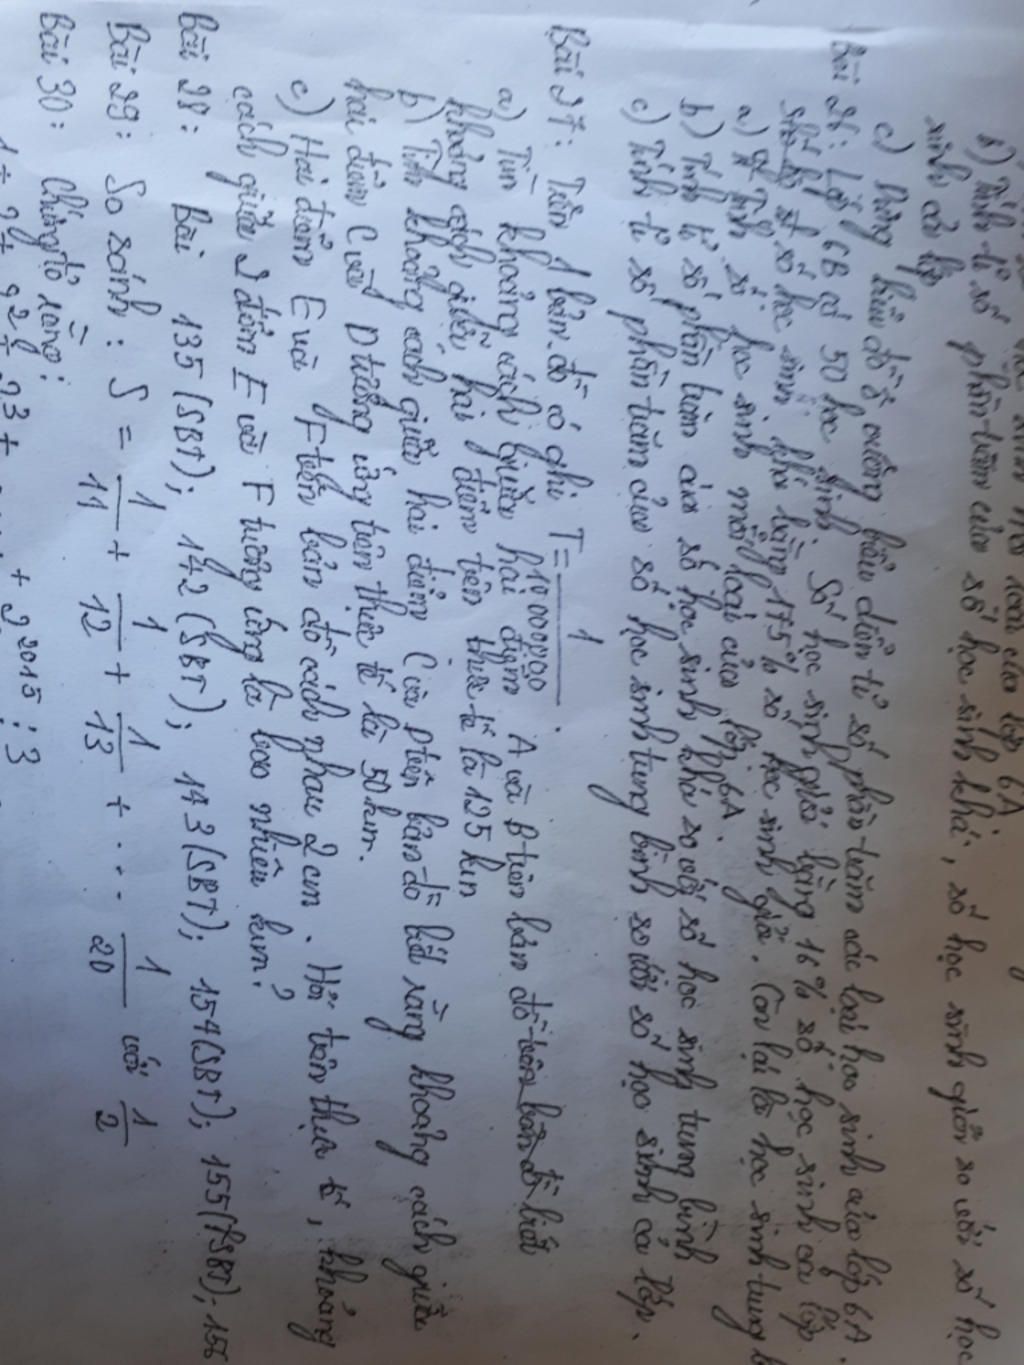 b) Tính tỉ số phần trăm của số học sinh khá, số học sinh giỏi so với số học
sinh cả lớp
c) Dùng biểu đồ ô vuông biểu diễn tỉ số phần trăm các loại học sinh của lớp 6A.
Bài 26: Lớp 6B có 50 học sinh. Số học sinh giỏi bằng 16% số học sinh cả lớp
số học sinh khá bằng 175% số học sinh giỏi. Còn lại là học sinh trung b
a) Tính số học sinh mỗi loại của lớp 6A.
b) Tính tỉ số phần trăm của số học sinh khá so với số học sinh trung bình
c) Tính tỉ số phần trăm của số học sinh trung bình so với số học sinh cả lớp.
Bài 27: Trên 1 bản đồ có ghi T = 1/1000000.
a) Tìm khoảng cách giữa hai điểm A và B trên bản đồ biết
khoảng cách giữa hai điểm trên thực tế là 125 km
b) Tính khoảng cách giữa hai điểm C và D trên bản đồ biết rằng khoảng cách giữa
hai điểm C và D tương ứng trên thực tế là 50 km.
c) Hai điểm E và F trên bản đồ cách nhau 2 cm. Hỏi trên thực tế, khoảng
cách giữa 2 điểm E và F tương ứng là bao nhiêu km?
Bài 28: Bài 135 (SBT); 142 (SBT); 143 (SBT); 154 (SBT); 155 (SBT); 156
Bài 29: So sánh: S = 1/11 + 1/12 + 1/13 + ... 1/20 với 1/2
Bài 30: Chứng tỏ rằng:
+ 2^2015 : 3